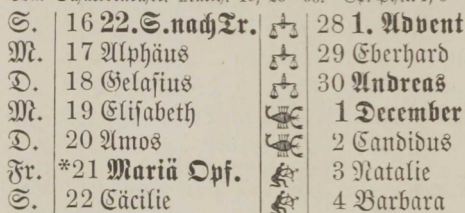 S. 16 22.S.nach Tr. 28 1. Advent
M. 17 Alphäus 29 Eberhard
D. 18 Gelasius 30 Andreas
M. 19 Elisabeth 1 December
D. 20 Amos 2 Candidus
Fr. *21 Mariä Opf. 3 Natalie
S. 22 Cäcilie 4 Barbara